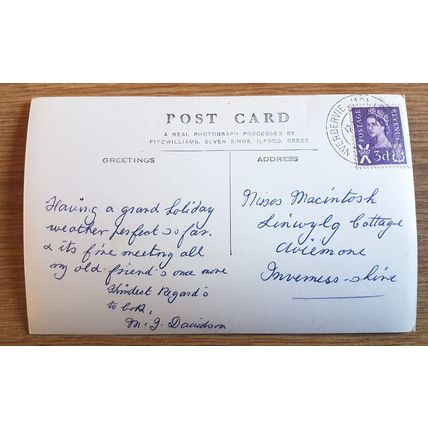 POST CARD
A REAL PHOTOGRAPH PROCESSED BY
FITZWILLIAMS, SEVEN KINGS, ILFORD, ESSEX
GREETINGS
Having a grand holiday
weather perfect so far.
& its fine meeting all
my old friend's once more
Kindest Regard's
to both,
M. J. Davidson
ADDRESS
Misses Macintosh
Linwylg Cottage
Aviemore
Inverness-shire
INVERBERVIE MONTROSE
POSTAGE
REVENUE
3d